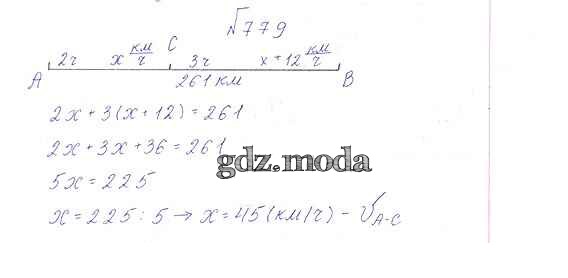 №779
C
2ч x км/ч 3ч x+12 км/ч
A 261 км B
2x+3(x+12)=261
2x+3x+36=261
gdz.moda
5x=225
x=225:5→x=45(км/ч)-V A-C